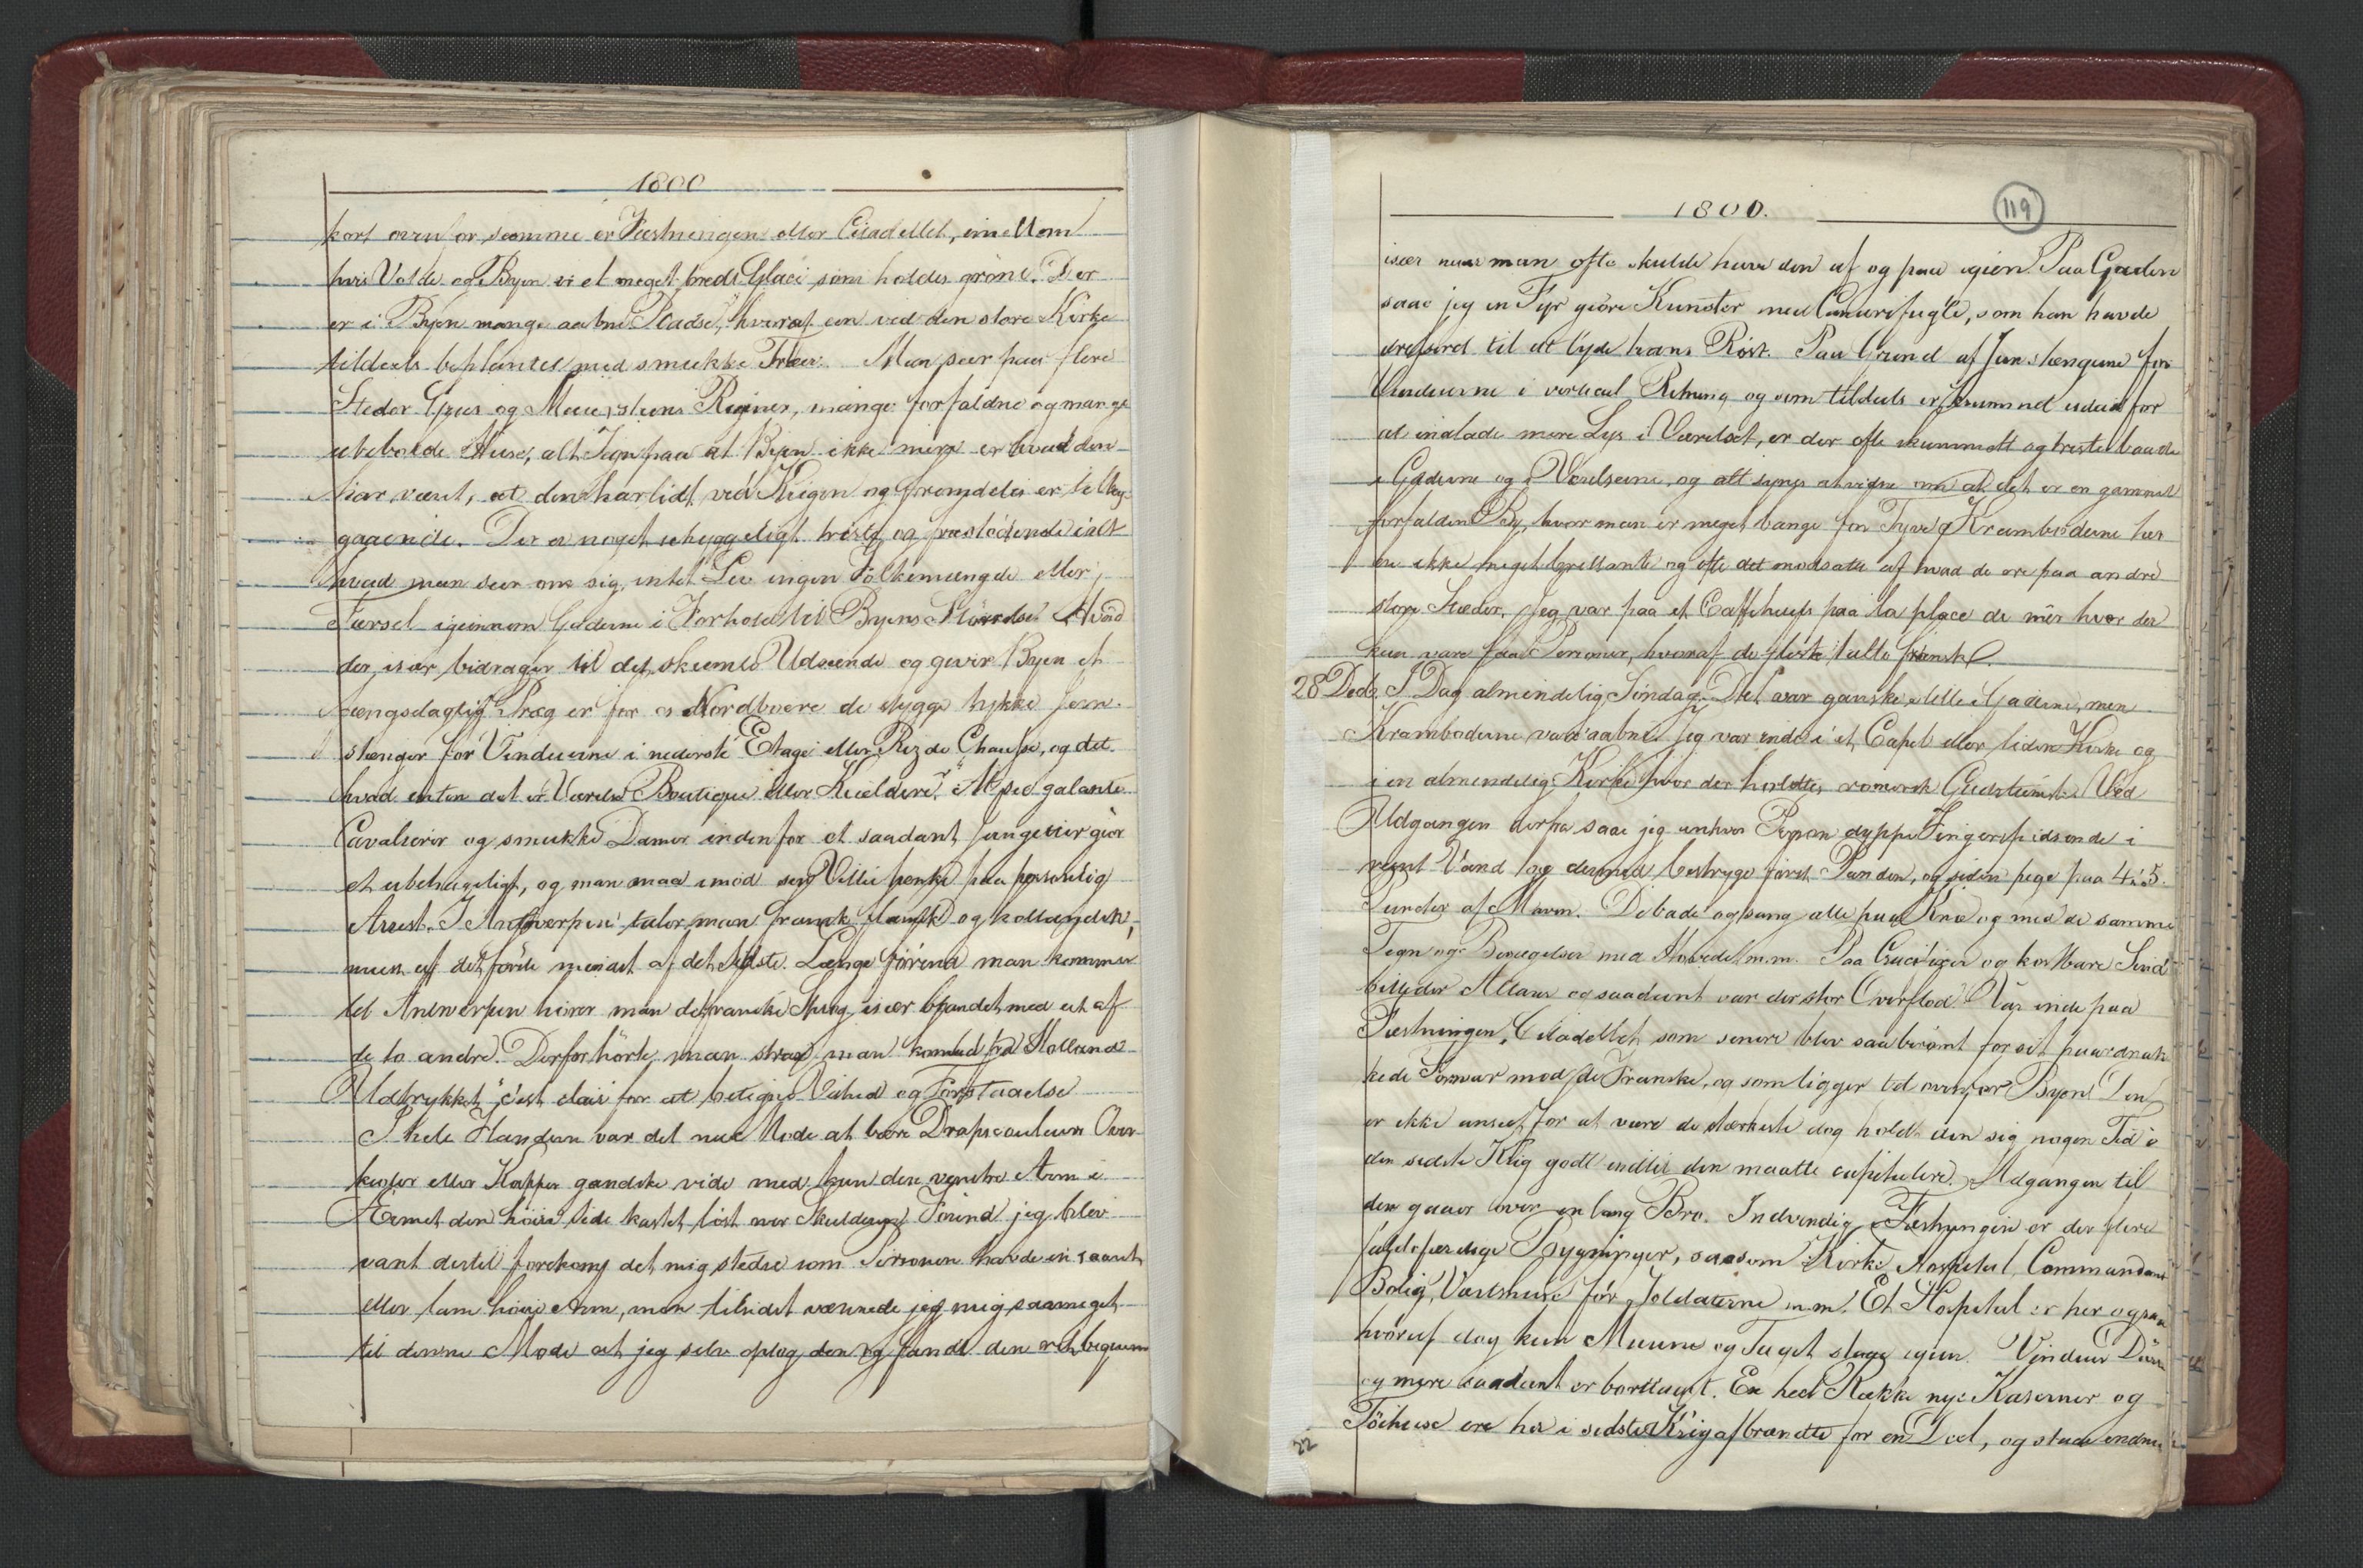 1800
kort ovenfor samme er Fæstningen eller Citadellet, imellem
hvis Volde og Byen er et meget bredt Glaci som holdes grönt. Der
er i Byen mange aabne Pladse, hvoraf een ved den store Kirke
tildeels beplantet med smukke Træer. Man seer paa flere
Steder Gruus og Muursteens Ruiner, mange forfaldne og mange
ubeboede Huse, alt Tegn paa at Byen ikke mere er hvad den
har været, at den har lidt ved Krigen og fremdeles er tilbage
gaaende. Der er noget uhyggeligt tristg og frastödende i alt
hvad man seer om sig, intet Liv ingen Folkemængde eller
Færsel igiennem Gaderne i Forhold til Byens Störrelse. Hvad
der især bidrager til det skumle Udseende og giver Byen et
Hængsdaglig Præg er for os Nordboere de stygge tykke Jern-
stænger for Vinduerne i nederste Etage eller Rez de Chausse, og det
hvad enten det er Værelse Boutique eller Kieldere. At see galante
Cavalierer og smukke Damer indenfor et saadant Fangebur giör
et ubehageligt, og man maa imod sin Villie tænke paa personlig
Arrest. I Antwerpen taler man fransk flamsk og hollandsk,
men af det förste meest af det sidste. Længe förend man kommer
til Antwerpen hörer man det franske Sprog især blandet med et af
de to andre. Derfor hörte man strax man kom ud fra Holland
Udtrykket "c'est clair for at betegne Vished og Forstaaelse
I hele Flandern var det nue Mode at bære Drapscouleurn Over-
kioler eller Kapper gandske vide med kun den venstre Arm i
Ærmet den höire Side kastet löst over Skulderen. Förend jeg blev
vant dertil forekom det mig stedse som Personen havde en saaret
eller lam höire Arm, men tilsidst vænnede jeg mig saameget
til denne Mode at jeg selv optog den og fandt den ret beqvem
1800.
119
især naar man ofte skulde have den af og paa igien. Paa Gaden
saae jeg en Fyr giöre Kunster med Canarifugle, som han havde
dresseret til at lyde hans Röst. Paa Grund af Jernstængerne for
Vinduerne i vertical Retning og som tildeels er krummet udad for
at indlade mere Lys i Værelset, er der ofte skummelt og trist baade
i Gaderne og Værelserne, og alt synes at vidne om at det er en gammel
forfalden By, hvor man er meget bange for Tyve. Kramboderne her
ere ikke meget brillante og ofte det modsatte af hvad de ere paa andre
store Stæder. Jeg var paa et Caffehuus paa la place de mér hvor der
kun vare faae Personer, hvoraf de fleste talte fransk.
28 Decb. I Dag almindelig Söndag. Det var ganske stille i Gaderne, men
Kramboderne vare aabne. Jeg var inde i et Capel eller liden Kirke og
i en almindelig Kirke hvor der holdtes romersk Gudstieneste. Ved
Udgangen derfra saae jeg enhver Person dyppe Fingerspidserne i
reent Vand og dermed bestryge först Panden, og siden pege paa 4 á 5
Puncter af Mven. De bade og sang alle paa Knæ og med de samme
Tegn og Bevægelser med Hovedet m.m. Paa Crucifixer og kostbare Sind
billeder Altare og saadant var der stor Overflod. Var inde paa
Fæstningen, Citadellet, som senere blev saa berömt for sit haardnak
kede Forsvar mod de Franske, og som ligger tæt ovenfor Byen. Den
er ikke anseet for at være de stærkeste dog holdt den sig nogen Tid i
den sidste Krig godt indtil den maatte capitulere. Adgangen til
den gaaer over en lang Bro. Indvendig i Fæstningen er der flere
faldefærdige Bygninger, saasom Kirke, Hospital, Commandant
Bolig, Værtshuse för Soldaterne m.m. Et Hospital er her ogsaa
hvoraf dog kun Murene og Taget staae igien. Vinduer Döre
og mere saadant er borttaget. En heel Række nye Kaserner og
Töihuse ere her i sidste Krig afbrændte for en Deel, og staae endnu
22